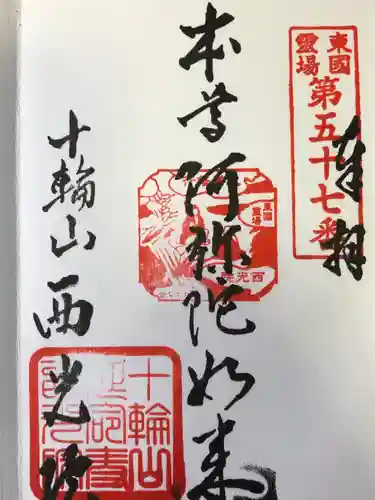 東國
靈場
第五十七番
奉拝
本尊阿弥陀如来
東国
霊場
西光院
十輪山西光院
十輪山